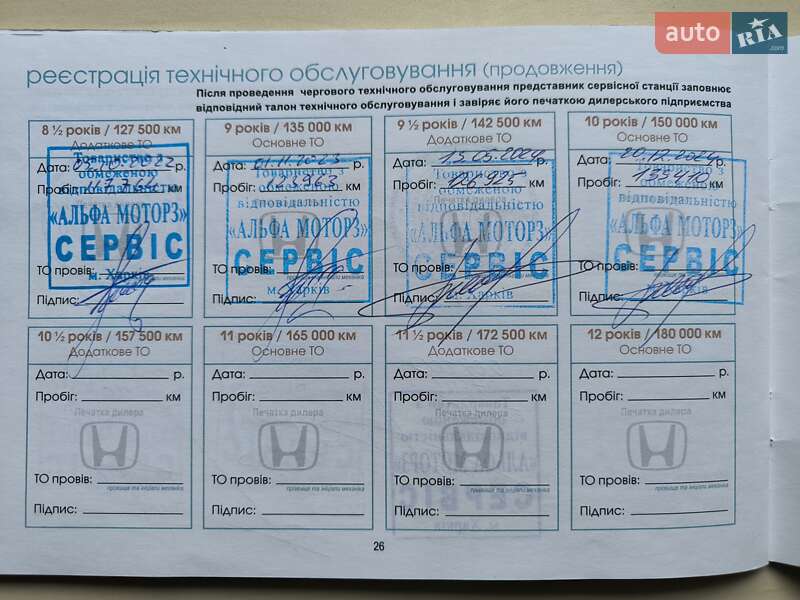 auto RIA.com
реєстрація технічного обслуговування (продовження)
Після проведення чергового технічного обслуговування представник сервісної станції заповнює
відповідний талон технічного обслуговування і завіряє його печаткою дилерського підприємства
8 ½ років / 127 500 км
Додаткове ТО
Дата: р.
Пробіг: км
Товариство з
обмеженою
відповідальністю
«АЛЬФА МОТОРЗ»
СЕРВІС
м. Харків
ТО провів:
Підпис:
9 років / 135 000 км
Основне ТО
Дата: 01.11.2023 р.
Пробіг: 123963 км
Товариство з
обмеженою
відповідальністю
«АЛЬФА МОТОРЗ»
СЕРВІС
м. Харків
ТО провів:
Підпис:
9 ½ років / 142 500 км
Додаткове ТО
Дата: 15.05.2024 р.
Пробіг: км
Товариство з
обмеженою
відповідальністю
«АЛЬФА МОТОРЗ»
СЕРВІС
м. Харків
ТО провів:
Підпис:
10 років / 150 000 км
Основне ТО
Дата: 20.12.2024 р.
Пробіг: 133410 км
Товариство з
обмеженою
відповідальністю
«АЛЬФА МОТОРЗ»
СЕРВІС
м. Харків
ТО провів:
Підпис:
10 ½ років / 157 500 км
Додаткове ТО
Дата: р.
Пробіг: км
Печатка дилера
ТО провів:
прізвище та ініціали механіка
Підпис:
11 років / 165 000 км
Основне ТО
Дата: р.
Пробіг: км
Печатка дилера
ТО провів:
прізвище та ініціали механіка
Підпис:
11 ½ років / 172 500 км
Додаткове ТО
Дата: р.
Пробіг: км
Печатка дилера
ТО провів:
прізвище та ініціали механіка
Підпис:
12 років / 180 000 км
Основне ТО
Дата: р.
Пробіг: км
Печатка дилера
ТО провів:
прізвище та ініціали механіка
Підпис:
26